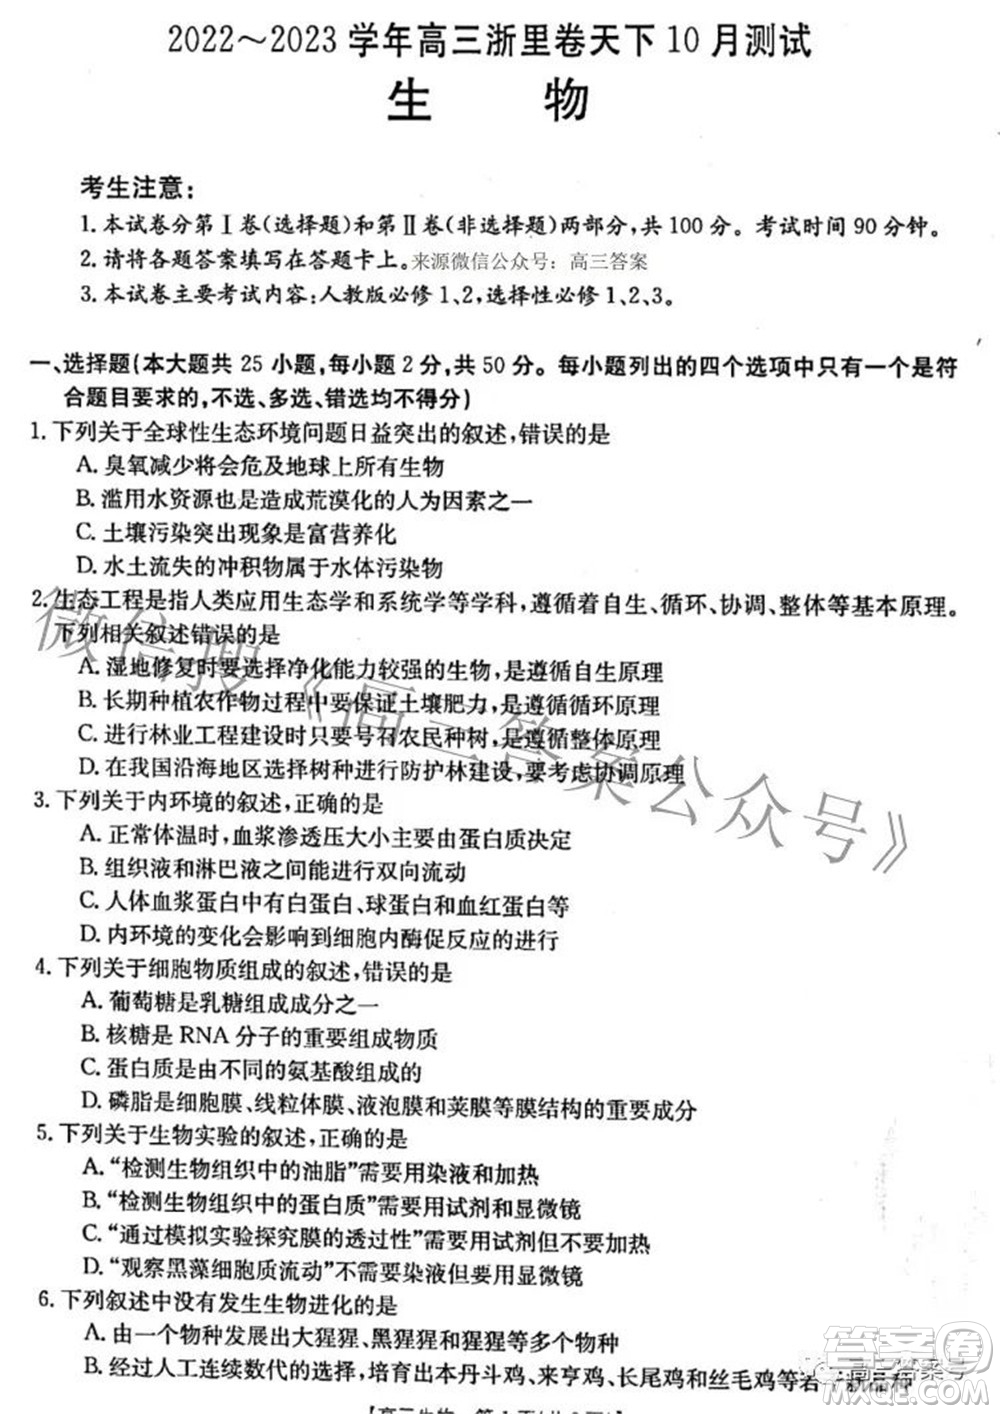 2022～2023 学年高三浙里卷天下 10 月测试
生 物
考生注意：
1. 本试卷分第Ⅰ卷(选择题)和第Ⅱ卷(非选择题)两部分，共 100 分。考试时间 90 分钟。
2. 请将各题答案填写在答题卡上。来源微信公众号：高三答案
3. 本试卷主要考试内容：人教版必修 1、2，选择性必修 1、2、3。
一、选择题(本大题共 25 小题，每小题 2 分，共 50 分。每小题列出的四个选项中只有一个是符
合题目要求的，不选、多选、错选均不得分)
1. 下列关于全球性生态环境问题日益突出的叙述，错误的是
A. 臭氧减少将会危及地球上所有生物
B. 滥用水资源也是造成荒漠化的人为因素之一
C. 土壤污染突出现象是富营养化
D. 水土流失的冲积物属于水体污染物
2. 生态工程是指人类应用生态学和系统学等学科，遵循着自生、循环、协调、整体等基本原理。
下列相关叙述错误的是
A. 湿地修复时要选择净化能力较强的生物，是遵循自生原理
B. 长期种植农作物过程中要保证土壤肥力，是遵循循环原理
C. 进行林业工程建设时只要号召农民种树，是遵循整体原理
D. 在我国沿海地区选择树种进行防护林建设，要考虑协调原理
3. 下列关于内环境的叙述，正确的是
A. 正常体温时，血浆渗透压大小主要由蛋白质决定
B. 组织液和淋巴液之间能进行双向流动
C. 人体血浆蛋白中有白蛋白、球蛋白和血红蛋白等
D. 内环境的变化会影响到细胞内酶促反应的进行
4. 下列关于细胞物质组成的叙述，错误的是
A. 葡萄糖是乳糖组成成分之一
B. 核糖是 RNA 分子的重要组成物质
C. 蛋白质是由不同的氨基酸组成的
D. 磷脂是细胞膜、线粒体膜、液泡膜和荚膜等膜结构的重要成分
5. 下列关于生物实验的叙述，正确的是
A. “检测生物组织中的油脂”需要用染液和加热
B. “检测生物组织中的蛋白质”需要用试剂和显微镜
C. “通过模拟实验探究膜的透过性”需要用试剂但不需要加热
D. “观察黑藻细胞质流动”既需要用染液也需要用显微镜
6. 下列叙述中没有发生生物进化的是
A. 由一个物种发展出大猩猩、黑猩猩和猩猩等多个物种
B. 经过人工连续数代的选择，培育出本丹斗鸡、来亨鸡、长尾鸡和丝毛鸡等若干新品种
微信搜《高三答案公众号》
高三答案号
答案圈